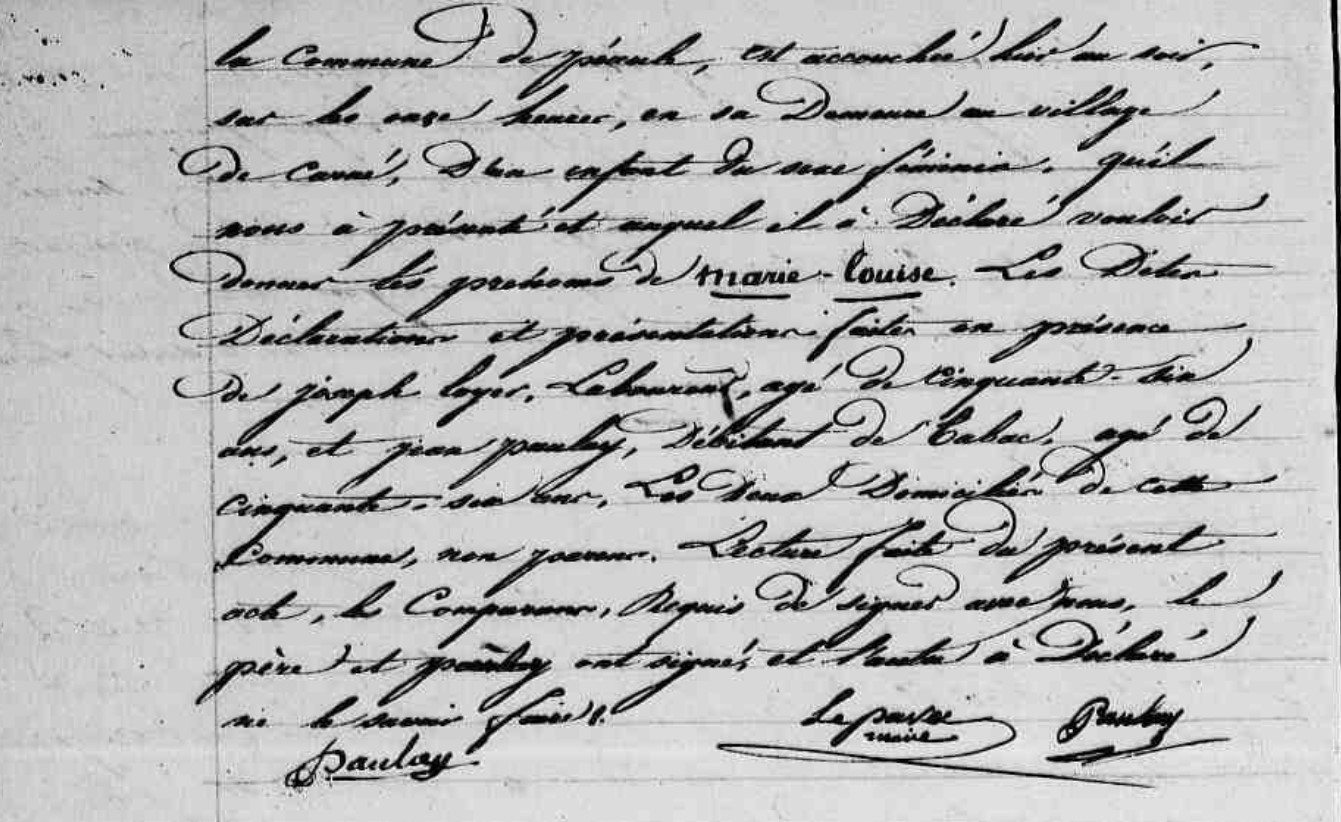 la Commune de péaule, est accouchée hier au soir,
sur les onze heures, en sa Demeure au village
de Carné, D'un enfant du sexe féminin, qu'il
nous à présenté et auquel il à Déclaré vouloir
donner les prenoms de marie-louise. Les Dites
Déclarations et présentations faites en présence
de joseph loyer, Laboureur, agé de cinquante-six
ans, et jean paulay, Débitant de tabac, agé de
cinquante-six ans, Les Deux Domiciliés de cette
Commune, non parens. Lecture faite du présent
acte, les Comparans, Requis de signer avec nous, le
père et paulay ont signé, et l'autre à Déclaré
ne le savoir faire.
Paulay
Paulay
maire